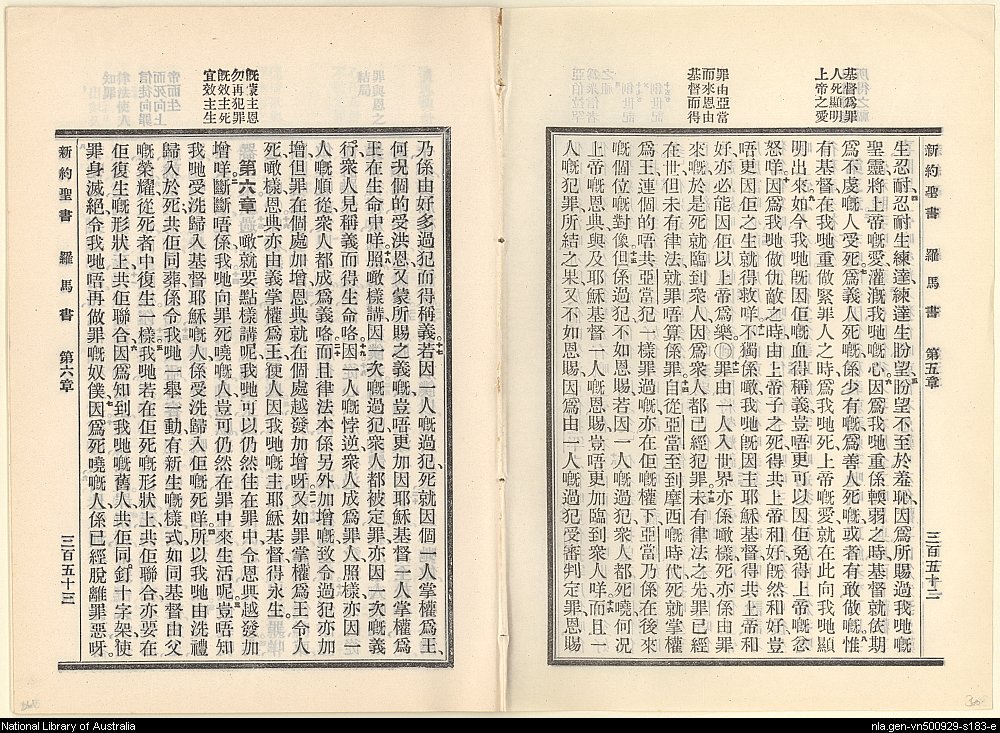 基督爲罪
人死顯明
上帝之愛
罪由亞當
而來恩由
基督而得
新約聖書 羅馬書 第五章 三百五十二
生忍耐忍耐生練達練達生盼望盼望不至於羞恥因爲所賜過我哋嘅
聖靈將上帝嘅愛灌溉我哋嘅心因爲我哋重係輭弱之時基督就依期
爲不虔嘅人受死爲義人死嘅係少有嘅爲善人死嘅或者有敢做嘅惟
有基督在我哋重做緊罪人之時爲我哋死上帝嘅愛就在此向我哋顯
明出來如今我哋旣因佢嘅血得稱義豈唔更可以因佢免得上帝嘅忿
怒咩因爲我哋做仇敵之時由上帝子之死得共上帝和好旣然和好豈
唔更因佢之生就得救咩不獨係噉我哋旣因主耶穌基督得共上帝和
好亦必能因佢以上帝爲樂罪由一人入世界亦係噉樣死亦係由罪
來嘅於是死就臨到衆人因爲衆人都已經犯罪未有律法之先罪已經
在世但未有律法就罪唔算係罪自從亞當至到摩西嘅時代死就掌權
爲王連個的唔共亞當犯一樣罪過嘅亦在佢嘅權下亞當乃係在後來
嘅個位嘅對像但係過犯不如恩賜若因一人嘅過犯衆人都死曉何况
上帝嘅恩典與及耶穌基督一人嘅恩賜豈唔更加臨到衆人咩而且一
人嘅犯罪所結之果又不如恩賜因爲由一人嘅過犯受審判定罪恩賜
旣蒙主恩
勿再犯罪
旣效主死
宜效主生
乃係由好多過犯而得稱義若因一人嘅過犯死就因個一人掌權爲王
何况個個的受洪恩又蒙所賜之義嘅豈唔更加因耶穌基督一人掌權爲
王在生命中咩照噉樣講因一次嘅過犯衆人都被定罪亦因一次嘅義
行衆人見稱義而得生命咯因一人嘅悖逆衆人成爲罪人照樣亦因一
人嘅順從衆人都成爲義咯而且律法本係另外加增嘅致令過犯亦加
增但罪在個處加增恩典就在個處越發加增呀又如罪掌權爲王令人
死噉樣恩典亦由義掌權爲王使人因我哋嘅主耶穌基督得永生
第六章 噉就要點樣講呢我哋可以仍然住在罪中令恩典越發加
增咩斷斷唔係我哋向罪死曉嘅人豈可仍然在罪中來生活呢豈唔知
我哋受洗歸入基督耶穌嘅人係受洗歸入佢嘅死咩所以我哋由洗禮
歸入於死共佢同葬係令我哋一舉一動有新生嘅樣式如同基督由父
嘅榮耀從死者中復生一樣我哋若在佢死嘅形狀上共佢聯合亦要在
佢復生嘅形狀上共佢聯合因爲知到我哋嘅舊人共佢同釘十字架使
罪身滅絕令我哋唔再做罪嘅奴僕因爲死曉嘅人係已經脫離罪惡呀
新約聖書 羅馬書 第六章 三百五十三
National Library of Australia
nla.gen-vn500929-s183-e